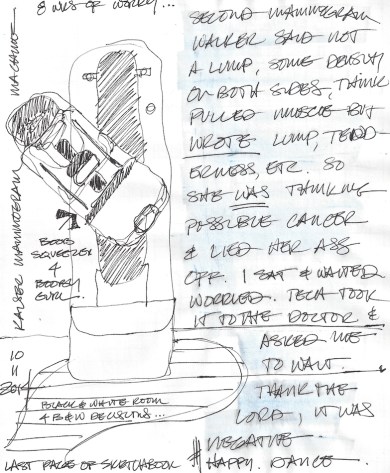 8 WKS OF WORRY...
SECOND MAMMOGRAM
WALKER SAID NOT
A LUMP, SOME DENSITY
ON BOTH SIDES, THINK
PULLED MUSCLE BUT
WROTE LUMP, TEND
ERNESS, ETC. SO
SHE WAS THINKING
POSSIBLE CANCER
& LIED HER ASS
OFF. I SAT & WAITED
WORRIED. TECH TOOK
IT TO THE DOCTOR &
ASKED ME
TO WAIT.
THANK THE
LORD, IT WAS
NEGATIVE
# HAPPY. DANCE
KAISER MAMMOGRAM MACHINE
BOOB
SQUEEZER
4
BOOBY
GURL
10
11
2014
BLACK & WHITE ROOM
4 B&W DECISIONS...
LAST PAGE OF SKETCHBOOK